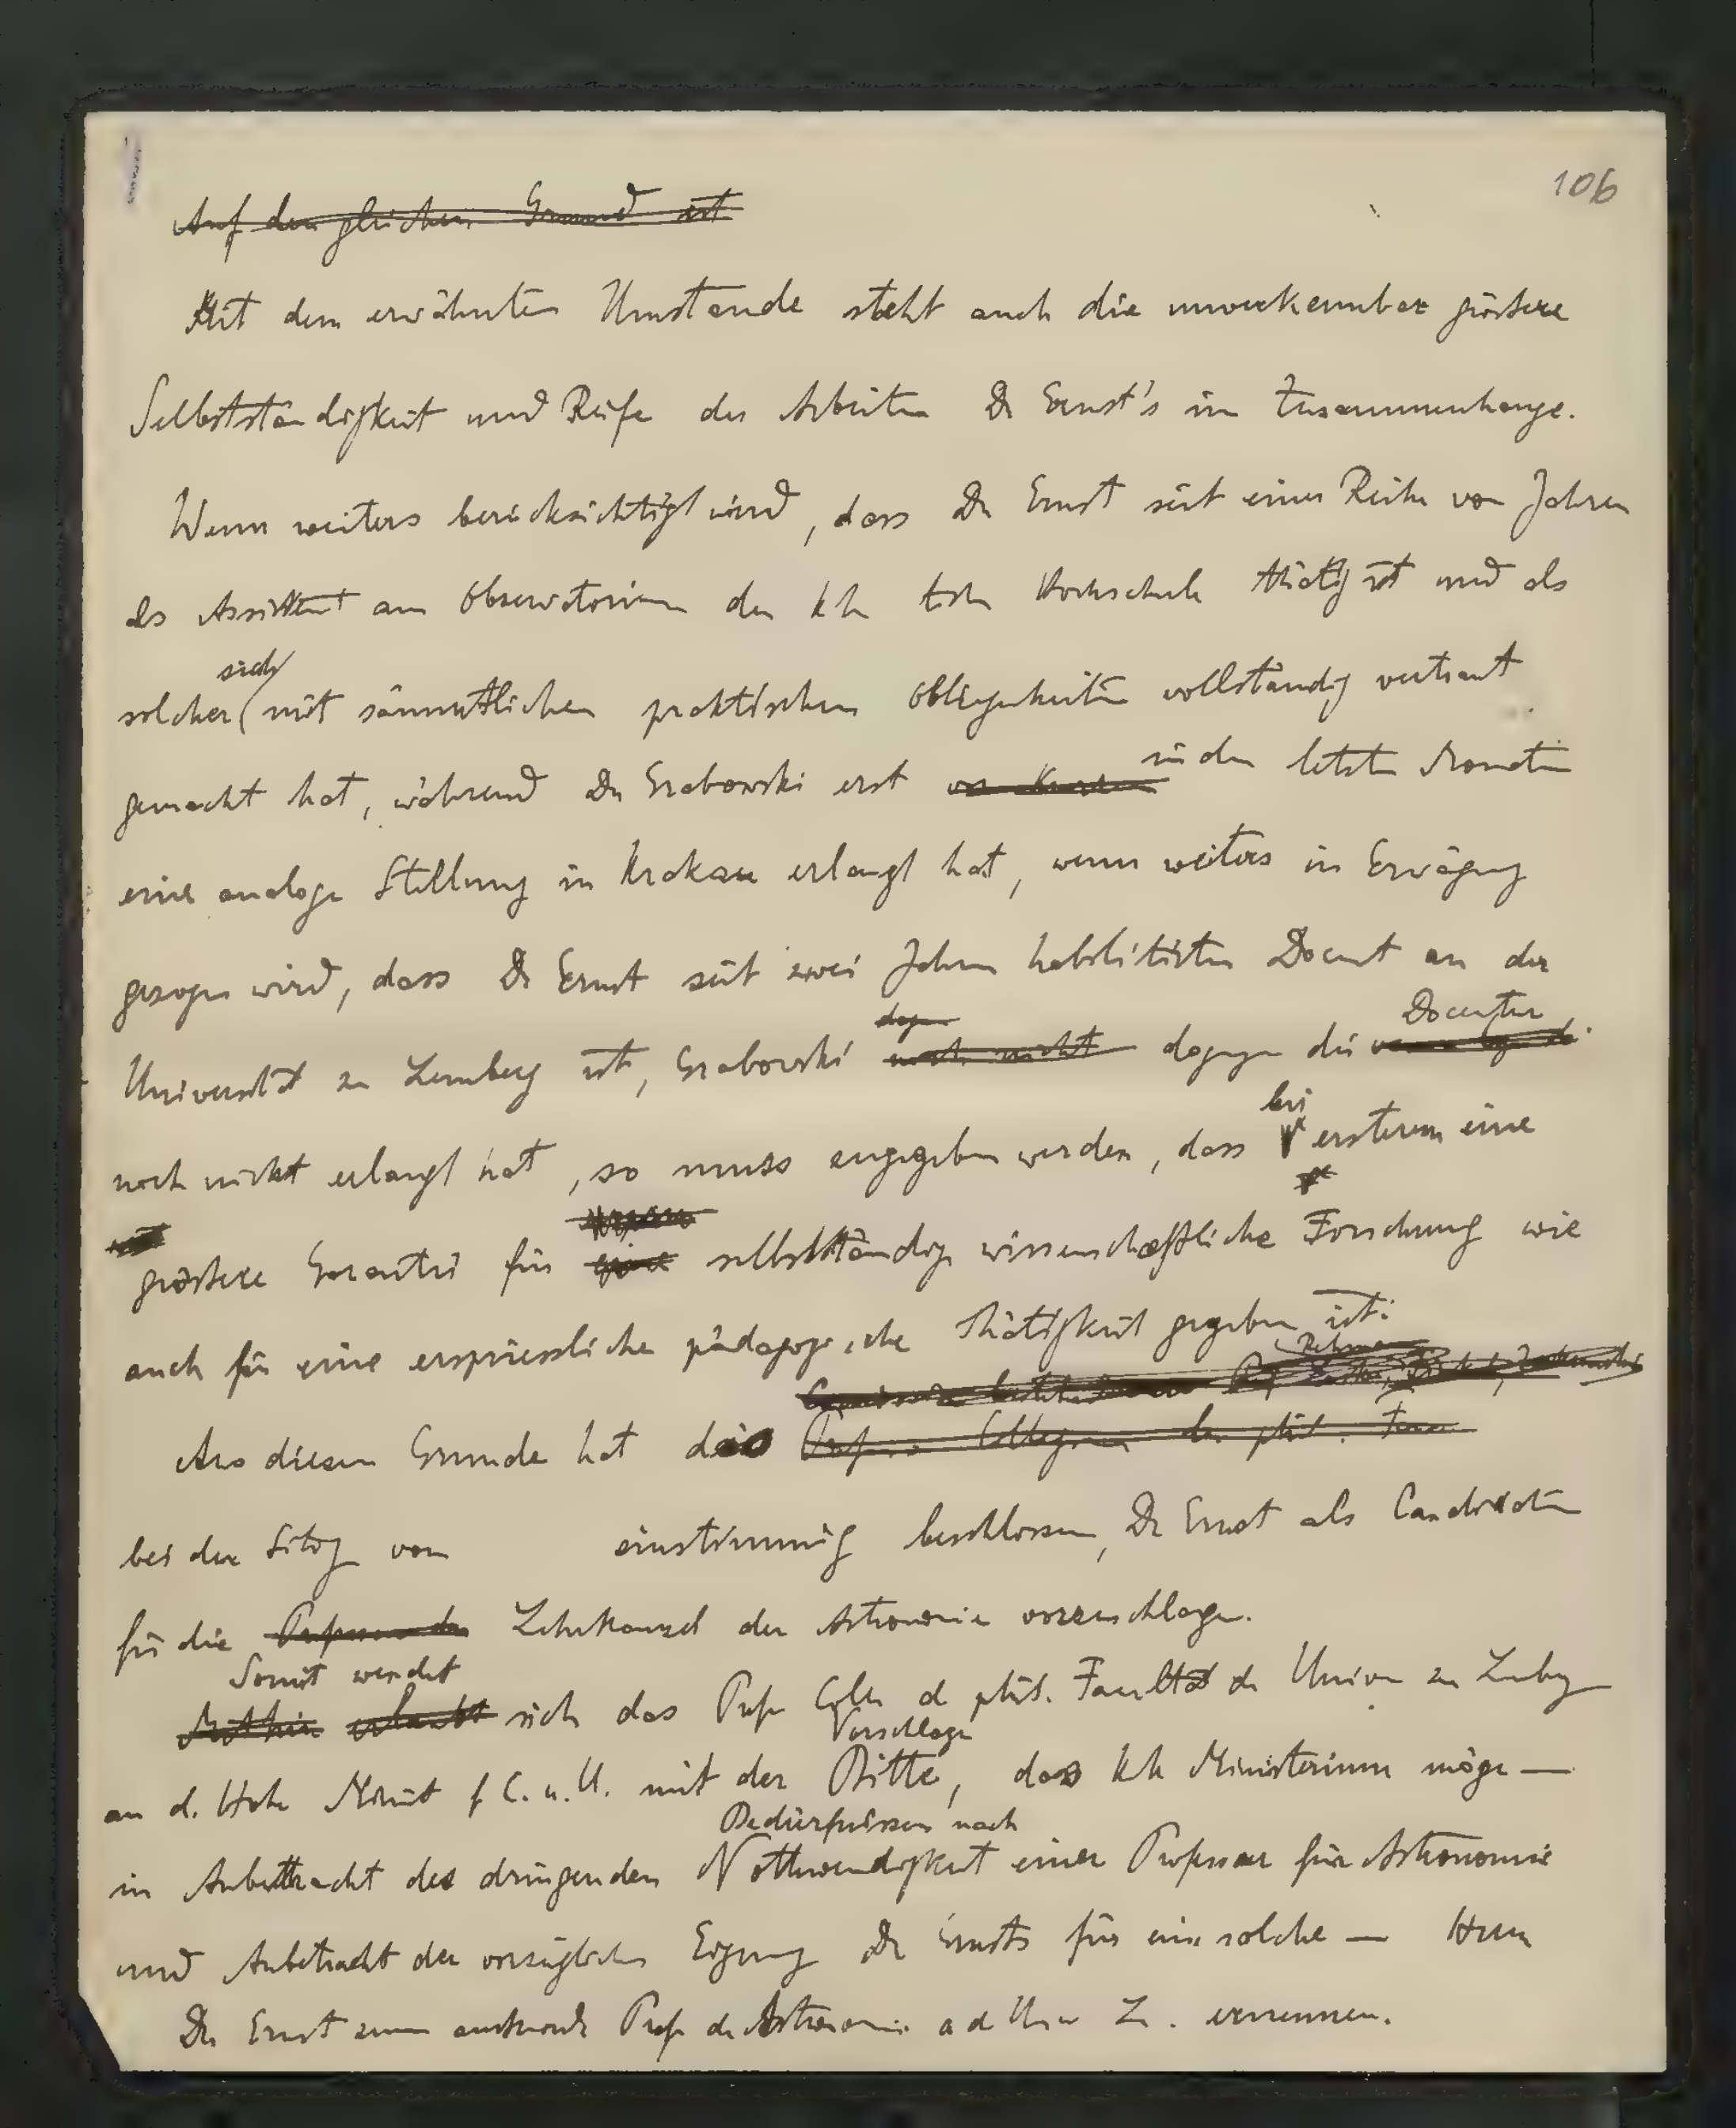 106
Auf den gleichen Grund ist
Mit dem erwähnten Umstande steht auch die unverkennbar grössere
Selbstständigkeit und Reife der Arbeiten Dr Ernst's im Zusammenhange.
Wenn weiters berücksichtigt wird, dass Dr Ernst seit einer Reihe von Jahren
als Assistent am Observatorium der kk tech Hochschule thätig ist und als
sich
solcher mit sämmtlichen praktischen Obliegenheiten vollständig vertraut
gemacht hat, während Dr Grabowski erst vor Kurzem in den letzten Monaten
eine analoge Stellung in Krakau erlangt hat, wenn weiters in Erwägung
gezogen wird, dass Dr Ernst seit zwei Jahren habilitirter Docent an der
Docentur
Universität zu Lemberg ist, Grabowski noch nicht dagegen die
bei
noch nicht erlangt hat, so muss angegeben werden, dass ersterem eine
grössere Garantie für eine selbstständige wissenschaftliche Forschung wie
auch für eine erspriessliche pädagogische Thätigkeit gegeben ist.
Aus diesem Grunde hat das Professoren Collegium der phil. Fac
bei der Sitzg vom einstimmig beschlossen, Dr Ernst als Candidaten
für die Lehrkanzel der Astronomie vorzuschlagen.
Somit wendet
Mithin erlaubt sich das Prof Coll d phil. Facultät d Univ zu Lmbg
Vorschlage
an d. Hohe Minist f C. u. U. mit der Bitte, das kk Ministerium möge —
Bedürfnisses nach
in Anbetracht des dringenden Nothwendigkeit einer Professur für Astronomie
und Anbetracht der vorzüglichen Eignung Dr Ernsts für eine solche — Herrn
Dr Ernst zum Prof der Astronomie a d Univ L. ernennen.